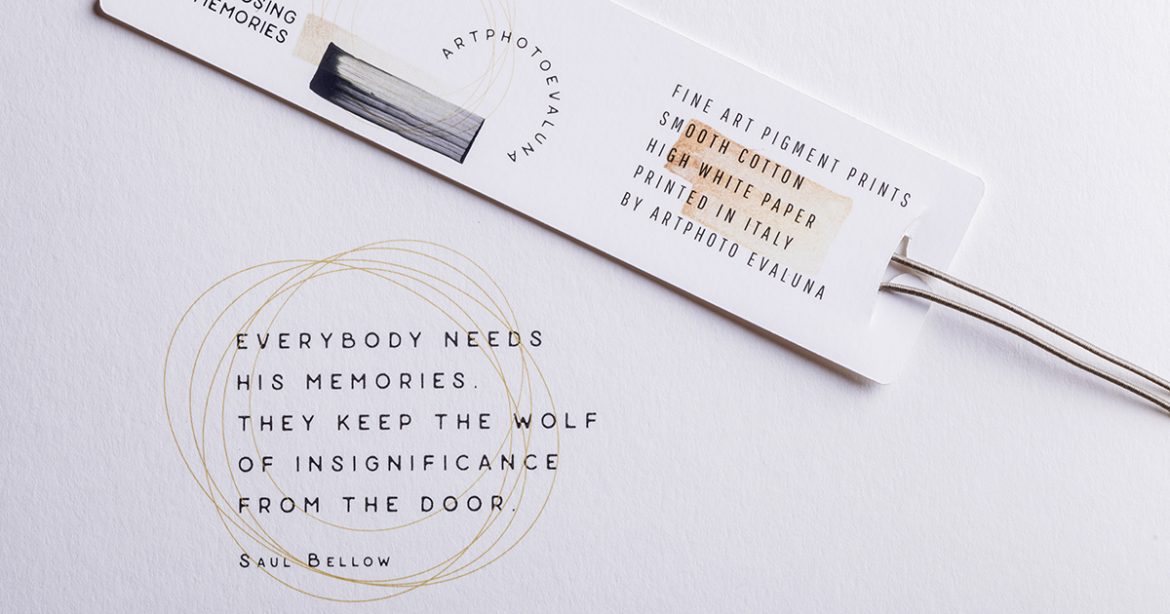 MEMORIES
ARTPHOTOEVALUNA
FINE ART PIGMENT PRINTS
SMOOTH COTTON
HIGH WHITE PAPER
PRINTED IN ITALY
BY ARTPHOTO EVALUNA
EVERYBODY NEEDS
HIS MEMORIES.
THEY KEEP THE WOLF
OF INSIGNIFICANCE
FROM THE DOOR.
SAUL BELLOW